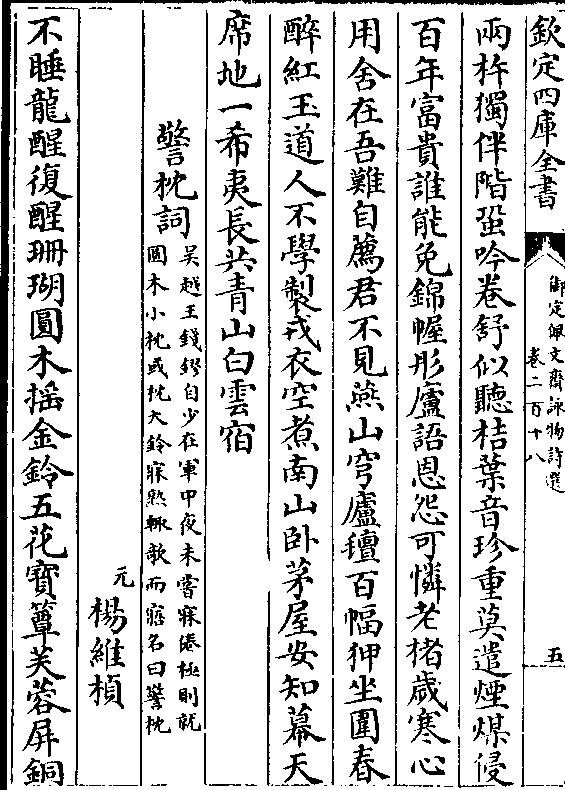 欽定四庫全書
御定佩文齋詠物詩選
卷二百十八
五
兩杵獨伴階蛩吟卷舒似聽桔葉音珍重莫遣煙煤侵
百年富貴誰能免錦幄彤廬語恩怨可憐老楮歲寒心
用舍在吾難自薦君不見燕山穹廬氊百幅狎坐圍春
醉紅玉道人不學製戎衣空煮南山卧茅屋安知幕天
席地一希夷長共青山白雲宿
警枕詞
吳越王錢鏐自少在軍中夜未嘗寐倦極則就
圓木小枕或枕大鈴寐熟輙欹而寤名曰警枕
元
楊維楨
不睡龍醒復醒珊瑚圓木揺金鈴五花寶簟芙蓉屏銅